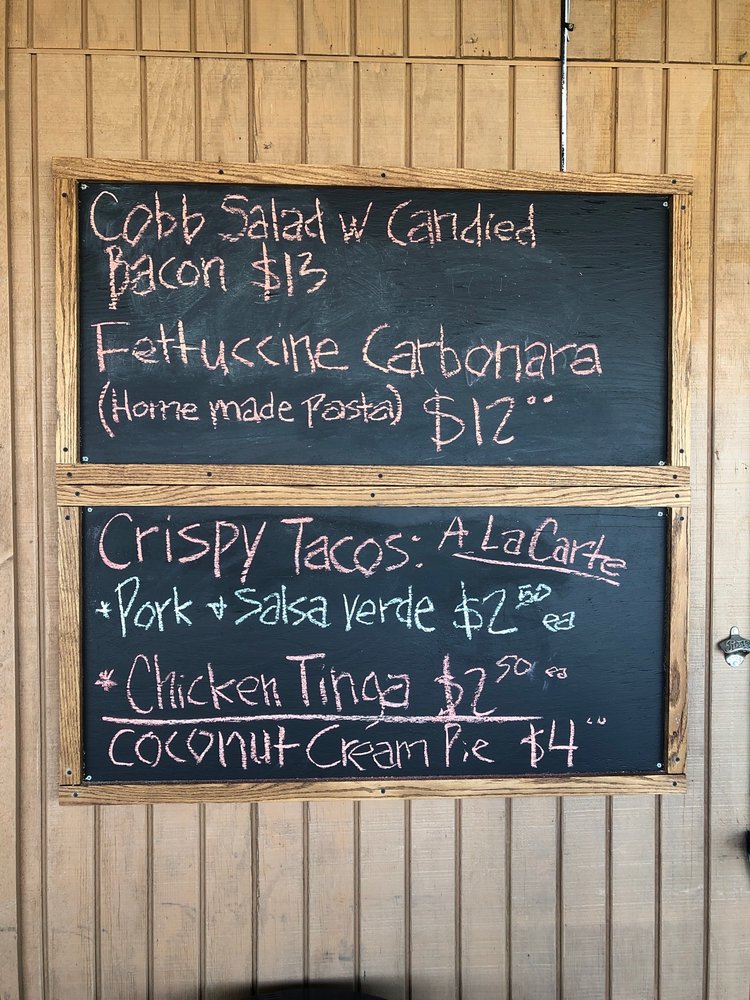 Cobb Salad w Candied
Bacon $13
Fettuccine Carbonara
(Home made Pasta) $12°°
Crispy Tacos: A La Carte
*Pork + Salsa verde $2⁵⁰ ea
*Chicken Tinga $2⁵⁰ ea
Coconut Cream Pie $4°°